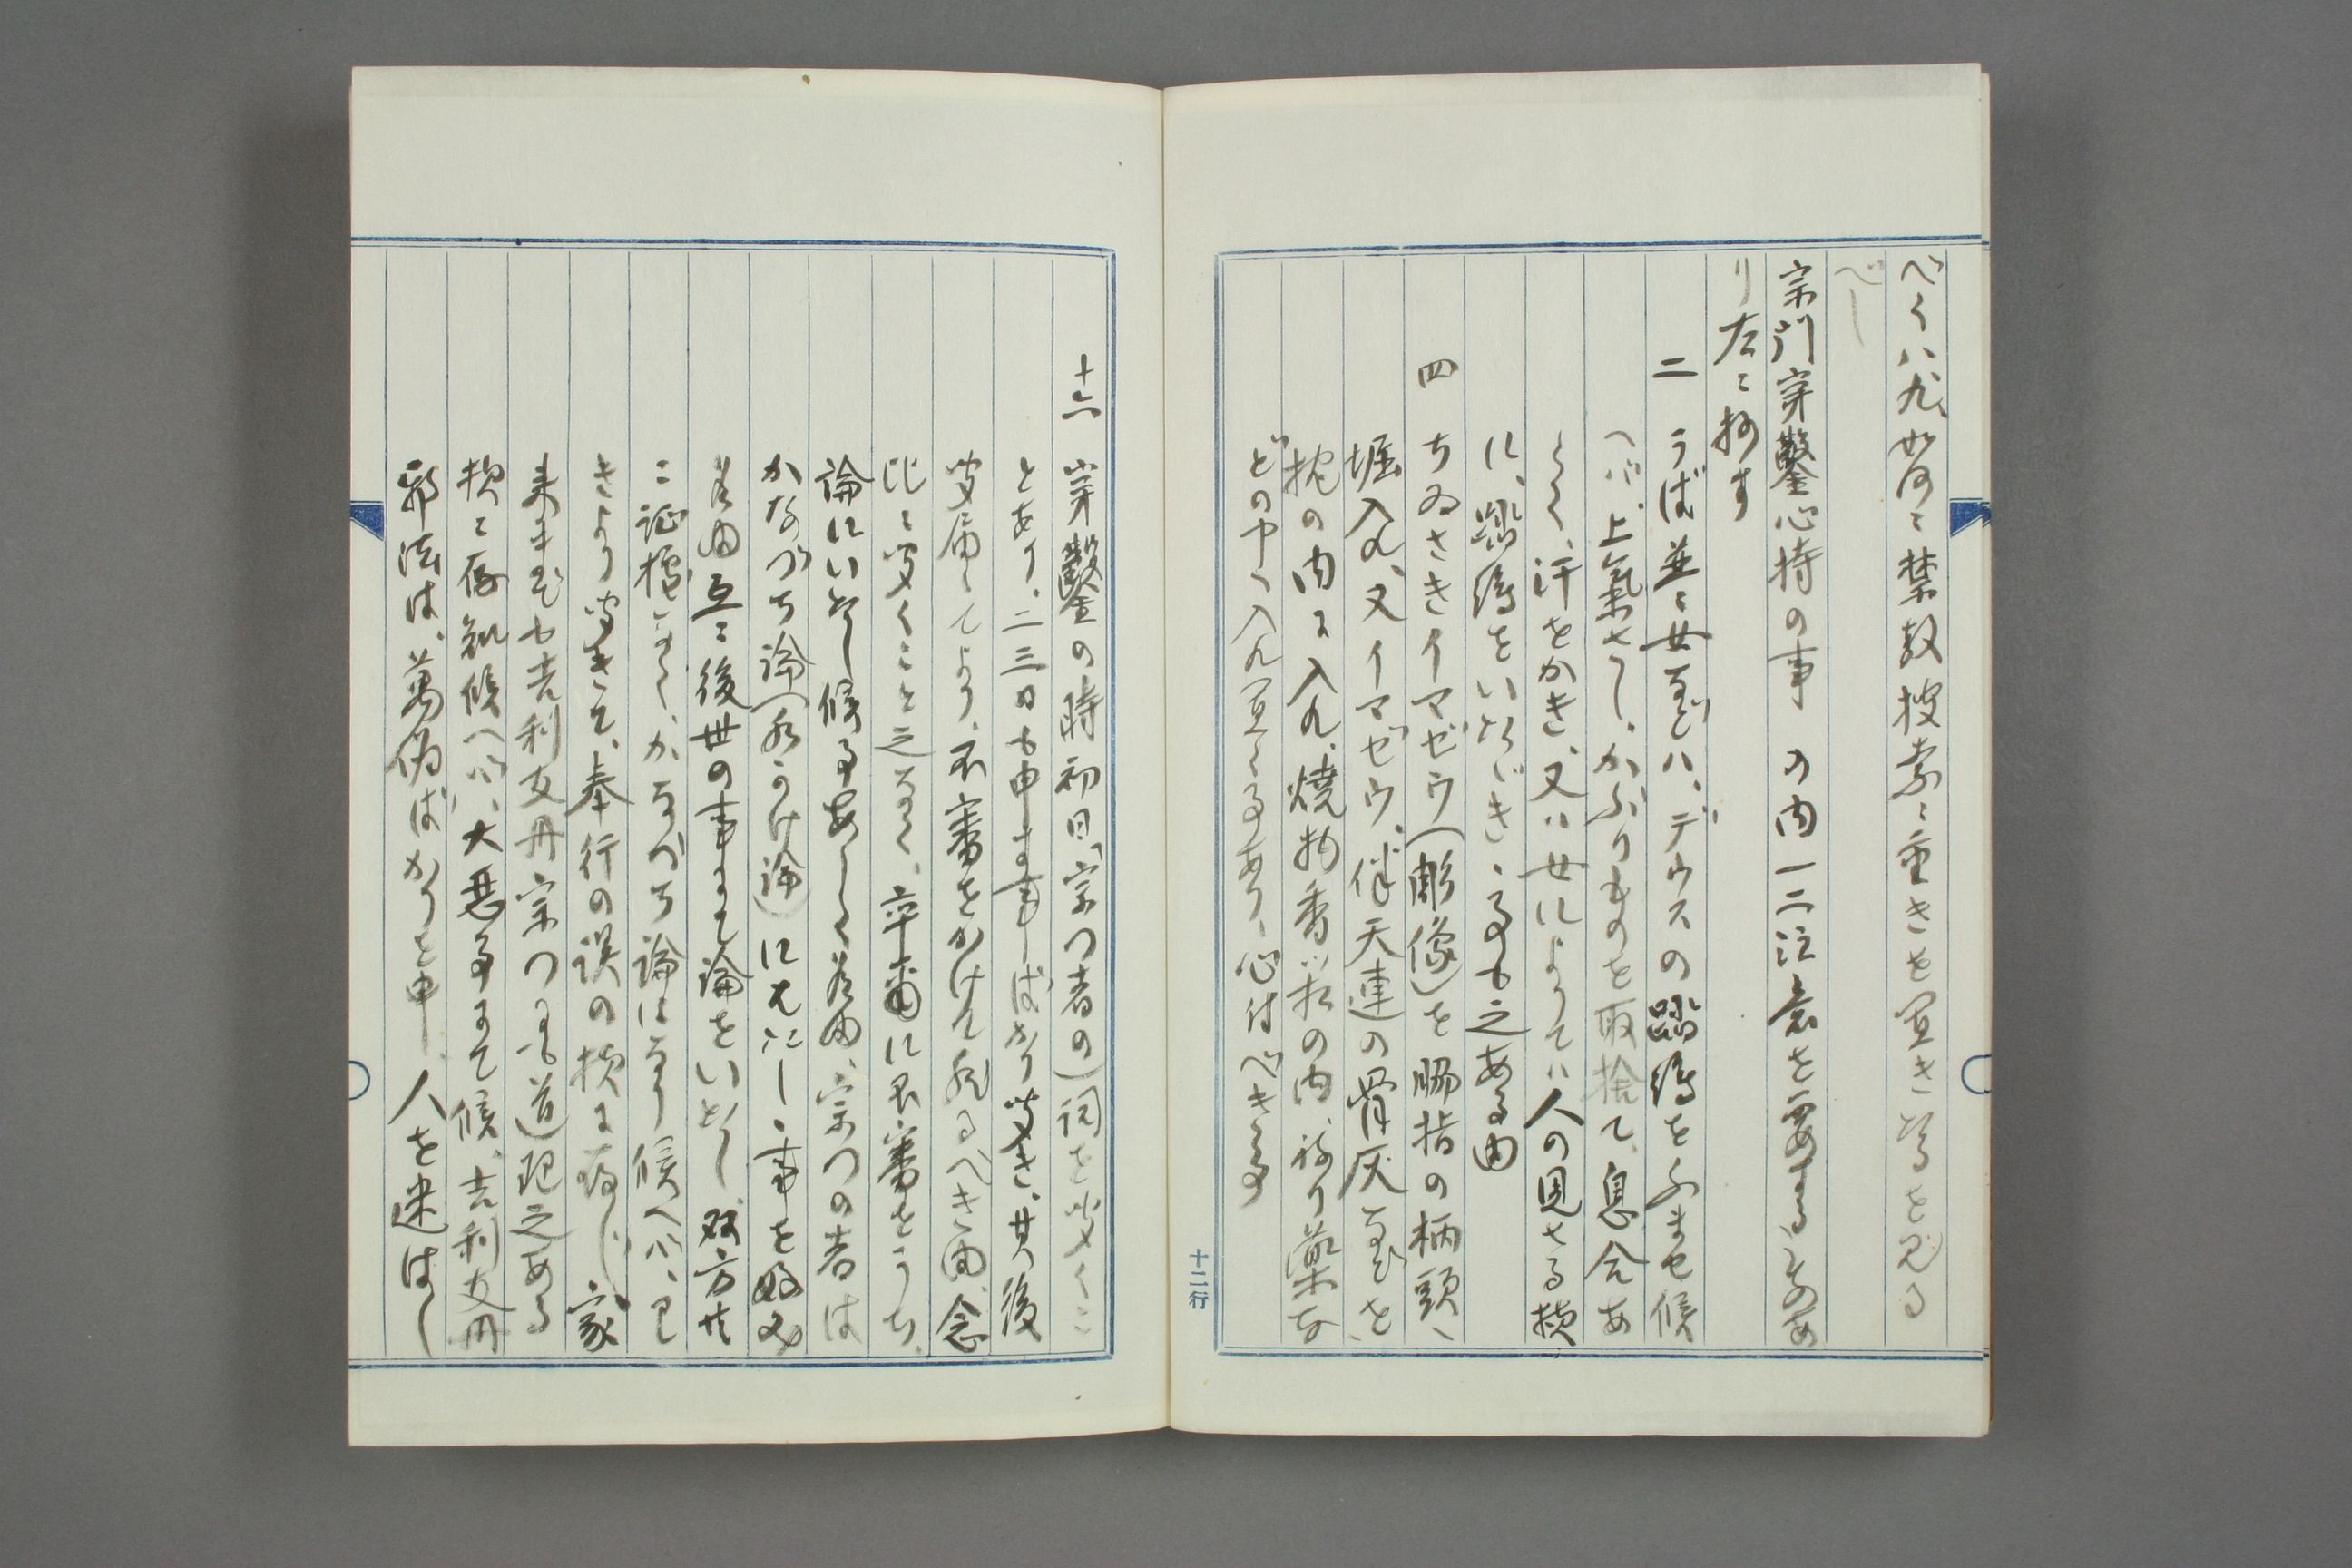 べく以九、如何に禁教捜索に重きを置きたるを見る
べし
宗門穿鑿心持の事 の内一二注意を要するものあ
り左に抄す
二 うば並に女などハ、デウスの踏絵をふませ候
へバ、上氣さし、かぶりものを取捨て、息合あ
らく、汗をかき、又ハ女によりてハ人の見さる様
に、踏絵をいたゞき、る事も之ある由
四 ちゐさきイマゼウ(彫像)を脇指の柄頭へ
堀入れ、又イマゼウ、伴天連の骨灰などを、
枕の内に入れ、焼物香箱の内、ねり薬な
どの中へ入れ置く事あり、心付べき事
十二行
十六 穿鑿の時初日「宗門者の)詞を聞くこ
とあり、二三日も申す事ばかり聞き、其後
聞届してより、不審をかけ尋るべき由、念
比に聞くこと之なく、卒爾に不審をうち、
論にいたし候事あしく差由、宗門の者は
かなづち論(水かけ論)に仕たし、事を好み
差由互に後世の事まで論をいたし、双方共
に証拠なく、かなづち論になり候へバ、わ
きより聞きて、奉行の誤の様に存じ、家
来までも吉利支丹宗門にも道理之ある
様に存知候へバ、大悪事にて候、吉利支丹
邪法は、萬偽ばかりを申し、人を迷はし